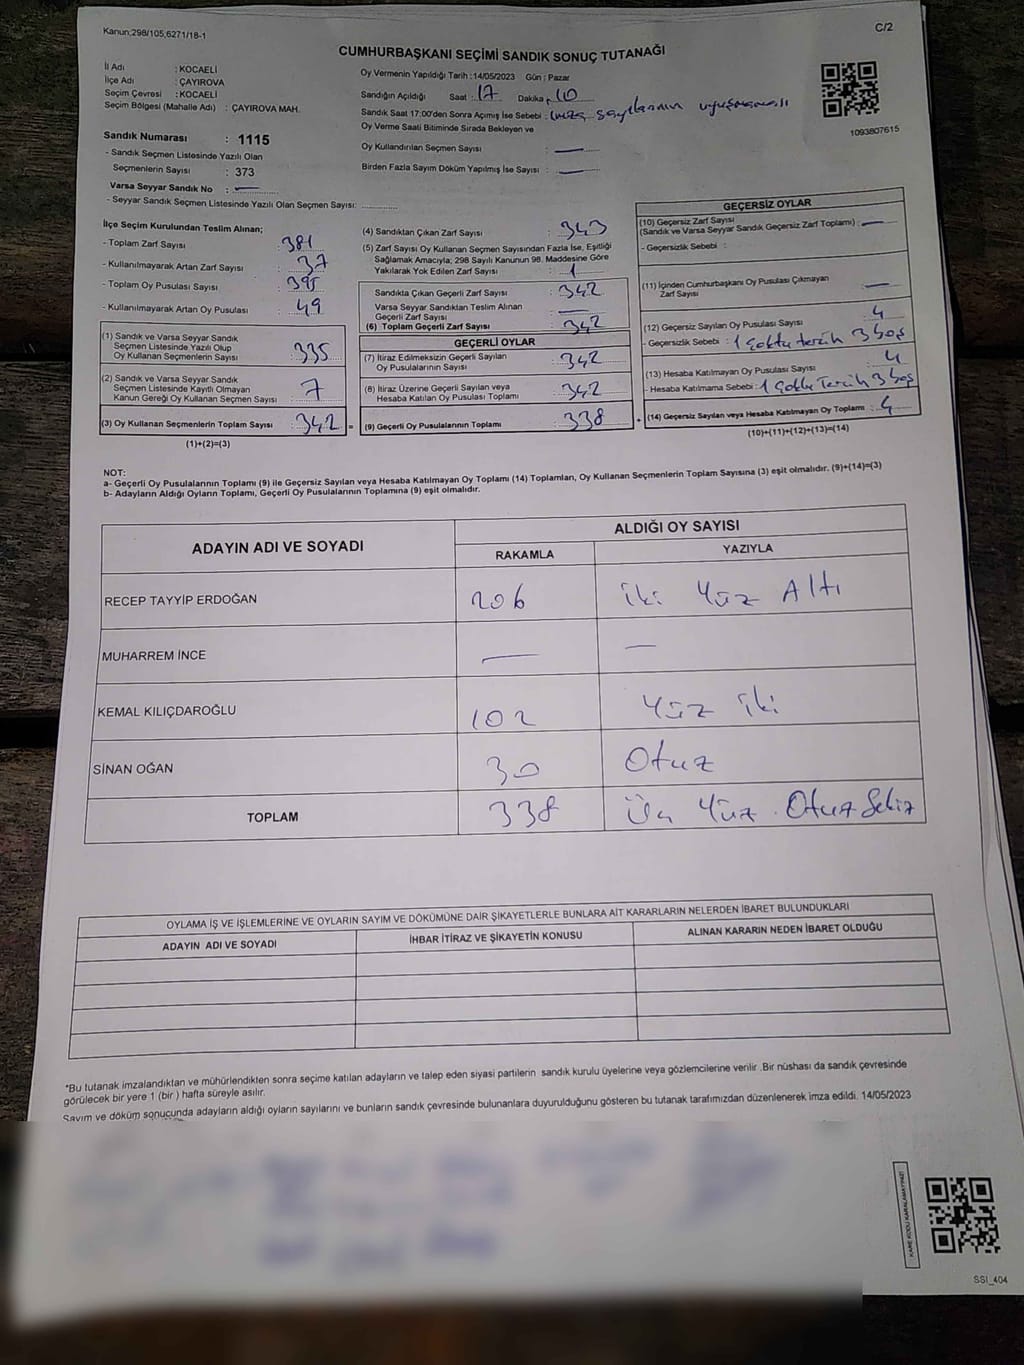 Kanun;298/105,6271/18-1
C/2
CUMHURBAŞKANI SEÇİMİ SANDIK SONUÇ TUTANAĞI
İl Adı : KOCAELİ
İlçe Adı : ÇAYIROVA
Seçim Çevresi : KOCAELİ
Seçim Bölgesi (Mahalle Adı) : ÇAYIROVA MAH.
Sandık Numarası : 1115
- Sandık Seçmen Listesinde Yazılı Olan
Seçmenlerin Sayısı : 373
Varsa Seyyar Sandık No : —
- Seyyar Sandık Seçmen Listesinde Yazılı Olan Seçmen Sayısı: ............
Oy Vermenin Yapıldığı Tarih : 14/05/2023 Gün : Pazar
Sandığın Açıldığı Saat : 17 Dakika : 10
Sandık Saat 17:00'den Sonra Açımış İse Sebebi : imza sayılarının uyuşmaması
Oy Verme Saati Bitiminde Sırada Bekleyen ve
Oy Kullandırılan Seçmen Sayısı : —
Birden Fazla Sayım Döküm Yapılmış İse Sayısı : —
1093807615
İlçe Seçim Kurulundan Teslim Alınan;
- Toplam Zarf Sayısı : 381
- Kullanılmayarak Artan Zarf Sayısı : 37
- Toplam Oy Pusulası Sayısı : 395
- Kullanılmayarak Artan Oy Pusulası : 49
(1) Sandık ve Varsa Seyyar Sandık
Seçmen Listesinde Yazılı Olup
Oy Kullanan Seçmenlerin Sayısı : 335
(2) Sandık ve Varsa Seyyar Sandık
Seçmen Listesinde Kayıtlı Olmayan
Kanun Gereği Oy Kullanan Seçmen Sayısı : 7
(3) Oy Kullanan Seçmenlerin Toplam Sayısı : 342 =
(1)+(2)=(3)
(4) Sandıktan Çıkan Zarf Sayısı : 343
(5) Zarf Sayısı Oy Kullanan Seçmen Sayısından Fazla İse, Eşitliği
Sağlamak Amacıyla; 298 Sayılı Kanunun 98. Maddesine Göre
Yakılarak Yok Edilen Zarf Sayısı : 1
Sandıkta Çıkan Geçerli Zarf Sayısı : 342
Varsa Seyyar Sandıktan Teslim Alınan
Geçerli Zarf Sayısı : —
(6) Toplam Geçerli Zarf Sayısı : 342
GEÇERLİ OYLAR
(7) İtiraz Edilmeksizin Geçerli Sayılan
Oy Pusulalarının Sayısı : 342
(8) İtiraz Üzerine Geçerli Sayılan veya
Hesaba Katılan Oy Pusulası Toplamı : 342
(9) Geçerli Oy Pusulalarının Toplamı : 338 +
GEÇERSİZ OYLAR
(10) Geçersiz Zarf Sayısı
(Sandık ve Varsa Seyyar Sandık Geçersiz Zarf Toplamı) : —
- Geçersizlik Sebebi :
(11) İçinden Cumhurbaşkanı Oy Pusulası Çıkmayan
Zarf Sayısı : —
(12) Geçersiz Sayılan Oy Pusulası Sayısı : 4
- Geçersizlik Sebebi : 1 çoklu tercih 3 boş
(13) Hesaba Katılmayan Oy Pusulası Sayısı : 4
- Hesaba Katılmama Sebebi : 1 çoklu Tercih 3 boş
(14) Geçersiz Sayılan veya Hesaba Katılmayan Oy Toplamı : 4
(10)+(11)+(12)+(13)=(14)
NOT:
a- Geçerli Oy Pusulalarının Toplamı (9) ile Geçersiz Sayılan veya Hesaba Katılmayan Oy Toplamı (14) Toplamları, Oy Kullanan Seçmenlerin Toplam Sayısına (3) eşit olmalıdır. (9)+(14)=(3)
b- Adayların Aldığı Oyların Toplamı, Geçerli Oy Pusulalarının Toplamına (9) eşit olmalıdır.
ADAYIN ADI VE SOYADI
ALDIĞI OY SAYISI
RAKAMLA YAZIYLA
RECEP TAYYİP ERDOĞAN 206 iki Yüz Altı
MUHARREM İNCE — —
KEMAL KILIÇDAROĞLU 102 Yüz iki
SİNAN OĞAN 30 Otuz
TOPLAM 338 Üç Yüz Otuz Sekiz
OYLAMA İŞ VE İŞLEMLERİNE VE OYLARIN SAYIM VE DÖKÜMÜNE DAİR ŞİKAYETLERLE BUNLARA AİT KARARLARIN NELERDEN İBARET BULUNDUKLARI
ADAYIN ADI VE SOYADI İHBAR İTİRAZ VE ŞİKAYETİN KONUSU ALINAN KARARIN NEDEN İBARET OLDUĞU
*Bu tutanak imzalandıktan ve mühürlendikten sonra seçime katılan adayların ve talep eden siyasi partilerin sandık kurulu üyelerine veya gözlemcilerine verilir .Bir nüshası da sandık çevresinde
görülecek bir yere 1 (bir ) hafta süreyle asılır.
Sayım ve döküm sonucunda adayların aldığı oyların sayılarını ve bunların sandık çevresinde bulunanlara duyurulduğunu gösteren bu tutanak tarafımızdan düzenlenerek imza edildi. 14/05/2023
KARE KODU KARALAMAYINIZ!
SSİ_404